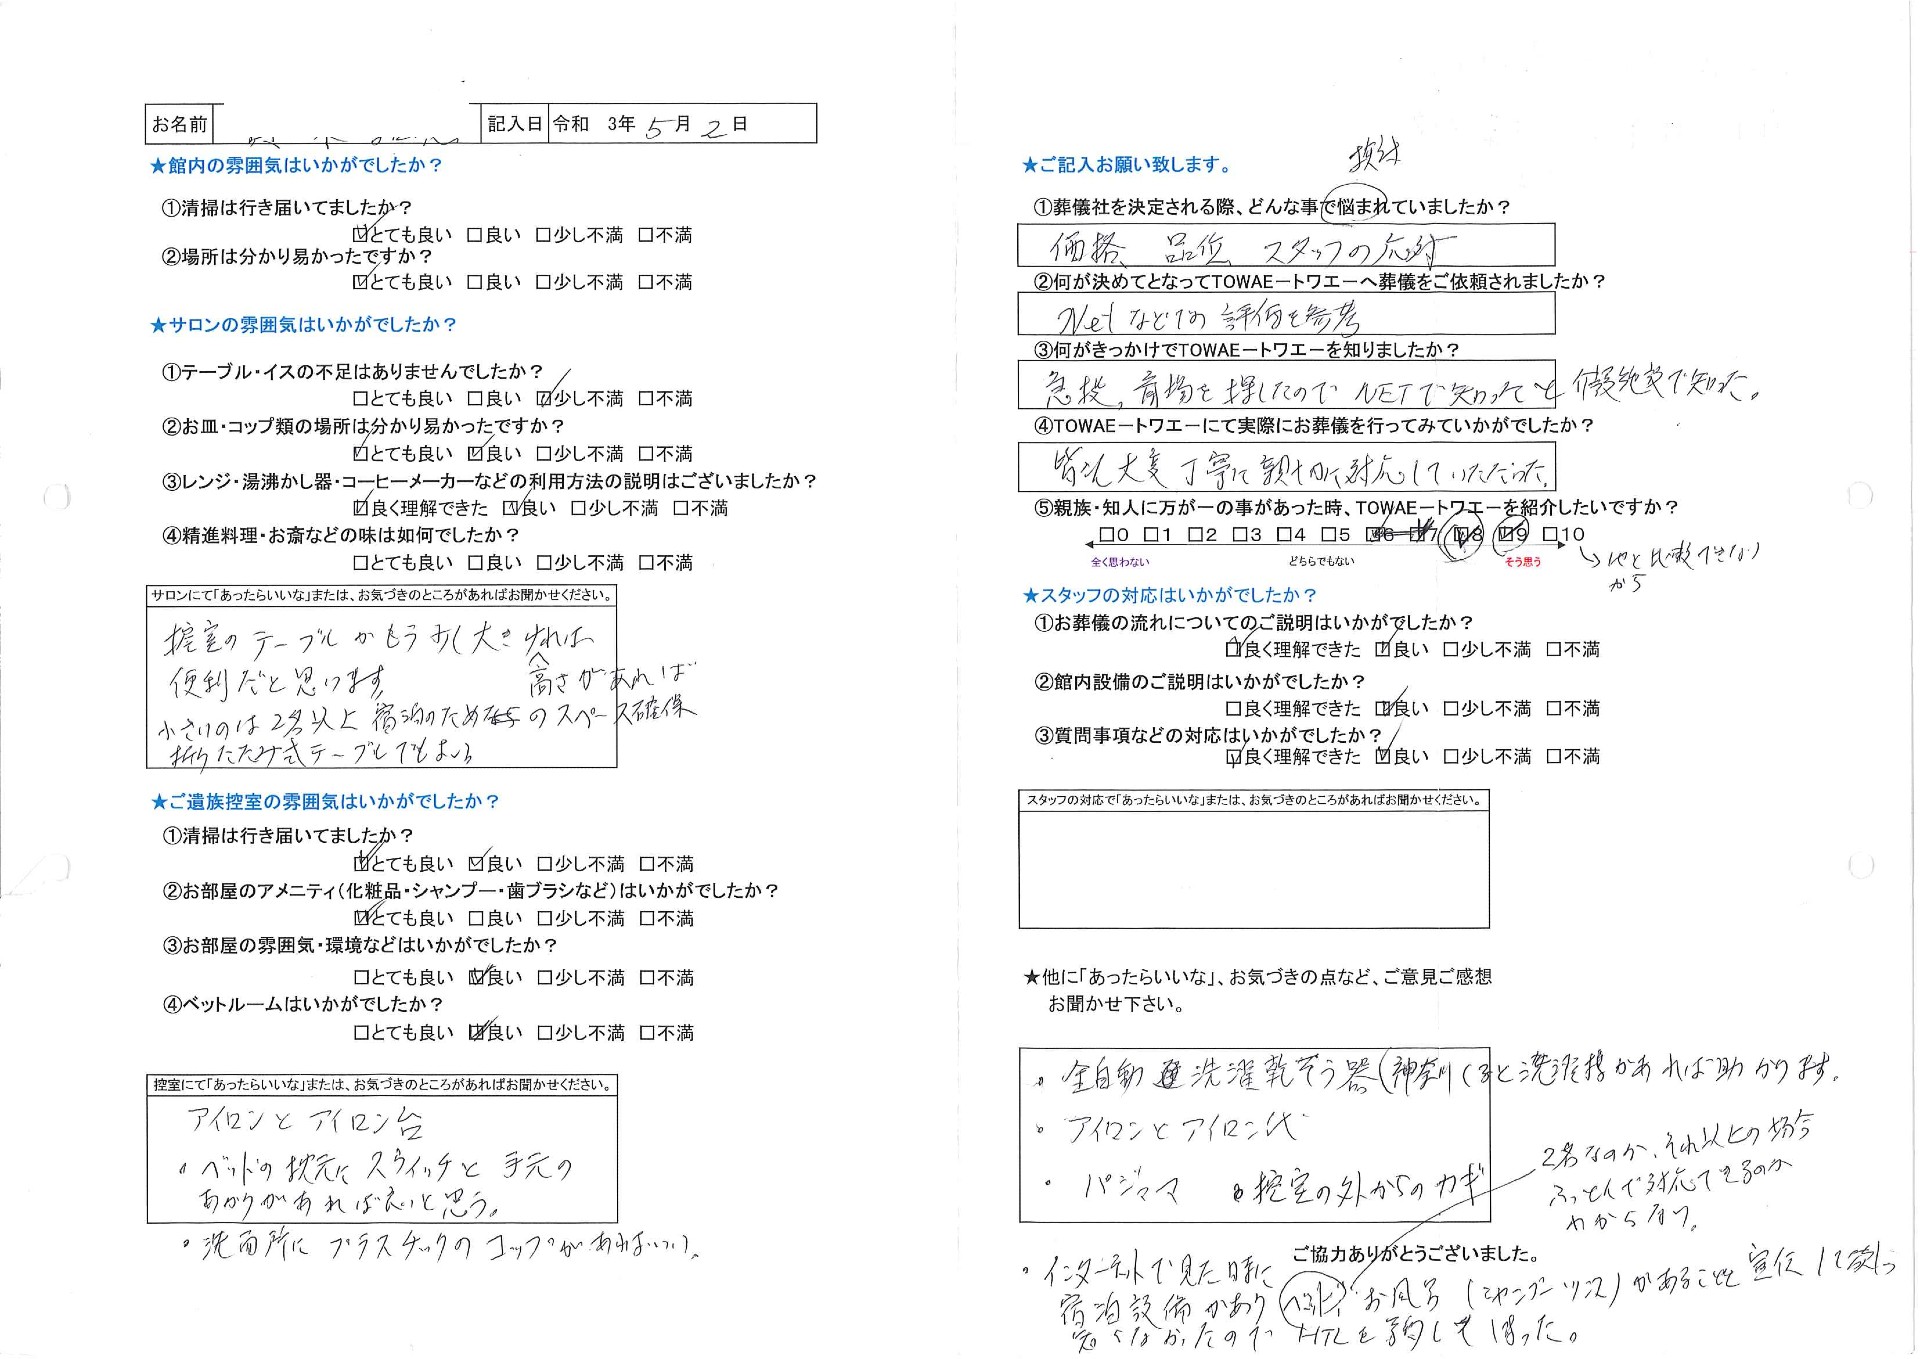 お名前 記入日 令和 3年 5月 2日
★館内の雰囲気はいかがでしたか？
①清掃は行き届いてましたか？
☑とても良い □良い □少し不満 □不満
②場所は分かり易かったですか？
☑とても良い □良い □少し不満 □不満
★サロンの雰囲気はいかがでしたか？
①テーブル・イスの不足はありませんでしたか？
□とても良い □良い ☑少し不満 □不満
②お皿・コップ類の場所は分かり易かったですか？
☑とても良い ☑良い □少し不満 □不満
③レンジ・湯沸かし器・コーヒーメーカーなどの利用方法の説明はございましたか？
☑良く理解できた ☑良い □少し不満 □不満
④精進料理・お斎などの味は如何でしたか？
□とても良い □良い □少し不満 □不満
サロンにて「あったらいいな」または、お気づきのところがあればお聞かせください。
控室のテーブルがもう少し大きければ
便利だと思います。 高さがあれば
小さいのは2名以上宿泊のための スペース確保
折りたたみ式テーブルでもよい
★ご遺族控室の雰囲気はいかがでしたか？
①清掃は行き届いてましたか？
☑とても良い ☑良い □少し不満 □不満
②お部屋のアメニティ（化粧品・シャンプー・歯ブラシなど）はいかがでしたか？
☑とても良い □良い □少し不満 □不満
③お部屋の雰囲気・環境などはいかがでしたか？
□とても良い ☑良い □少し不満 □不満
④ベットルームはいかがでしたか？
□とても良い ☑良い □少し不満 □不満
控室にて「あったらいいな」または、お気づきのところがあればお聞かせください。
アイロンとアイロン台
・ベッドの枕元にスウイッチと手元の
あかりがあれば良いと思う。
・洗面所にプラスチックのコップがあればいい。
★ご記入お願い致します。
検討
①葬儀社を決定される際、どんな事で悩まれていましたか？
価格、品位、スタッフの応対
②何が決めてとなってTOWAEートワエーへ葬儀をご依頼されましたか？
Netなどでの評価を参考
③何がきっかけでTOWAEートワエーを知りましたか？
急扱、斎場を探したのでNETで知ってと 介護施設で知った。
④TOWAEートワエーにて実際にお葬儀を行ってみていかがでしたか？
皆さん大変丁寧に親切に対応していただいた。
⑤親族・知人に万が一の事があった時、TOWAEートワエーを紹介したいですか？
□0 □1 □2 □3 □4 □5 ☑6 ☑7 ☑8 ☑9 □10
全く思わない どちらでもない そう思う
→他と比較できない
から
★スタッフの対応はいかがでしたか？
①お葬儀の流れについてのご説明はいかがでしたか？
☑良く理解できた ☑良い □少し不満 □不満
②館内設備のご説明はいかがでしたか？
□良く理解できた ☑良い □少し不満 □不満
③質問事項などの対応はいかがでしたか？
☑良く理解できた ☑良い □少し不満 □不満
スタッフの対応で「あったらいいな」または、お気づきのところがあればお聞かせください。
★他に「あったらいいな」、お気づきの点など、ご意見ご感想
お聞かせ下さい。
・全自動洗濯乾そう器 と洗濯機があれば助かります。
・アイロンとアイロン代
・パジャマ ・控室の外からのカギ
2名なのか、それ以上の場合
ふっとんで対応できるのか
わからない。
ご協力ありがとうございました。
・インターネットで見た時に
宿泊設備があり ベッド、お風呂（シャンプーリンス）があることを宣伝して欲しい
なかったのでHTLを予約してしまった。